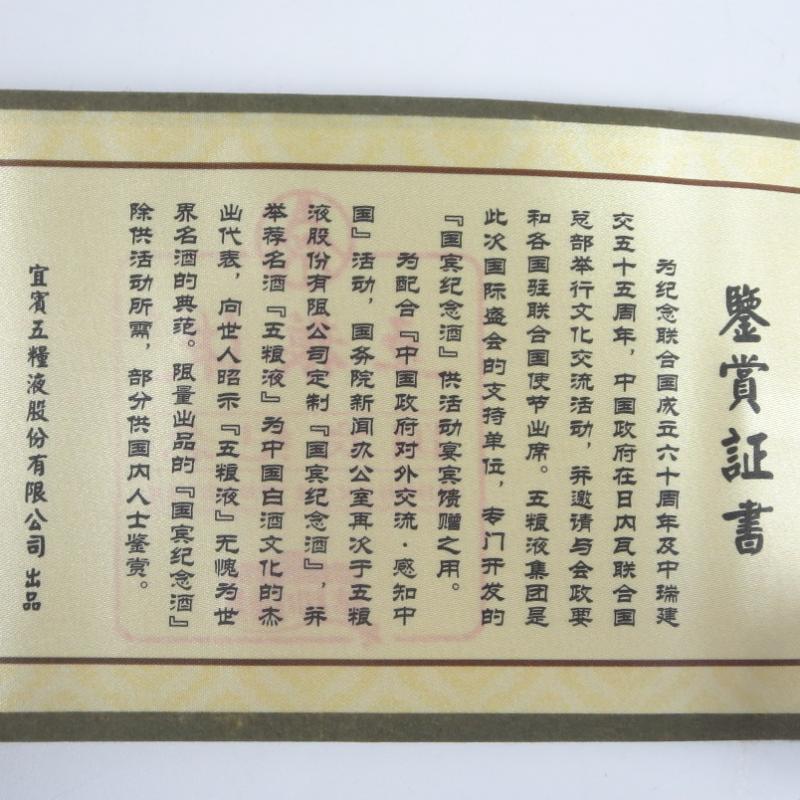 鑒賞証書
为纪念联合国成立六十周年及中瑞建
交五十五周年，中国政府在日内瓦联合国
总部举行文化交流活动，并邀请与会政要
和各国驻联合国使节出席。五粮液集团是
此次国际盛会的支持单位，专门开发的
『国宾纪念酒』供活动宴宾馈赠之用。
为配合『中国政府对外交流·感知中
国』活动，国务院新闻办公室再次于五粮
液股份有限公司定制『国宾纪念酒』，并
举荐名酒『五粮液』为中国白酒文化的杰
出代表，向世人昭示『五粮液』无愧为世
界名酒的典范。限量出品的『国宾纪念酒』
除供活动所需，部分供国内人士鉴赏。
宜賓五糧液股份有限公司 出品